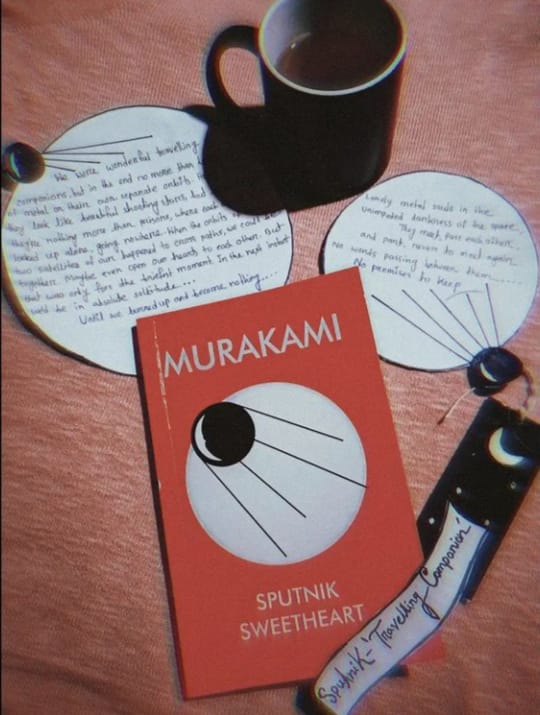 We were wonderful travelling
companions, but in the end no more than
of metal on their own separate orbits.
they look like beautiful shooting stars, but
they're nothing more than prisons, where each
locked up alone, going nowhere. When the orbits of
two satellites of ours happened to cross paths, we could be
together. Maybe even open our hearts to each other. But
that was only for the briefest moment. In the next instant
we'd be in absolute solitude...
Until we burned up and became nothing...
Lonely metal souls in the
unimpeded darkness of the space,
They meet, pass each other,
and part, never to meet again.
No words passing between them......
No promises to keep
MURAKAMI
SPUTNIK
SWEETHEART
Sputnik-'Travelling Companion'